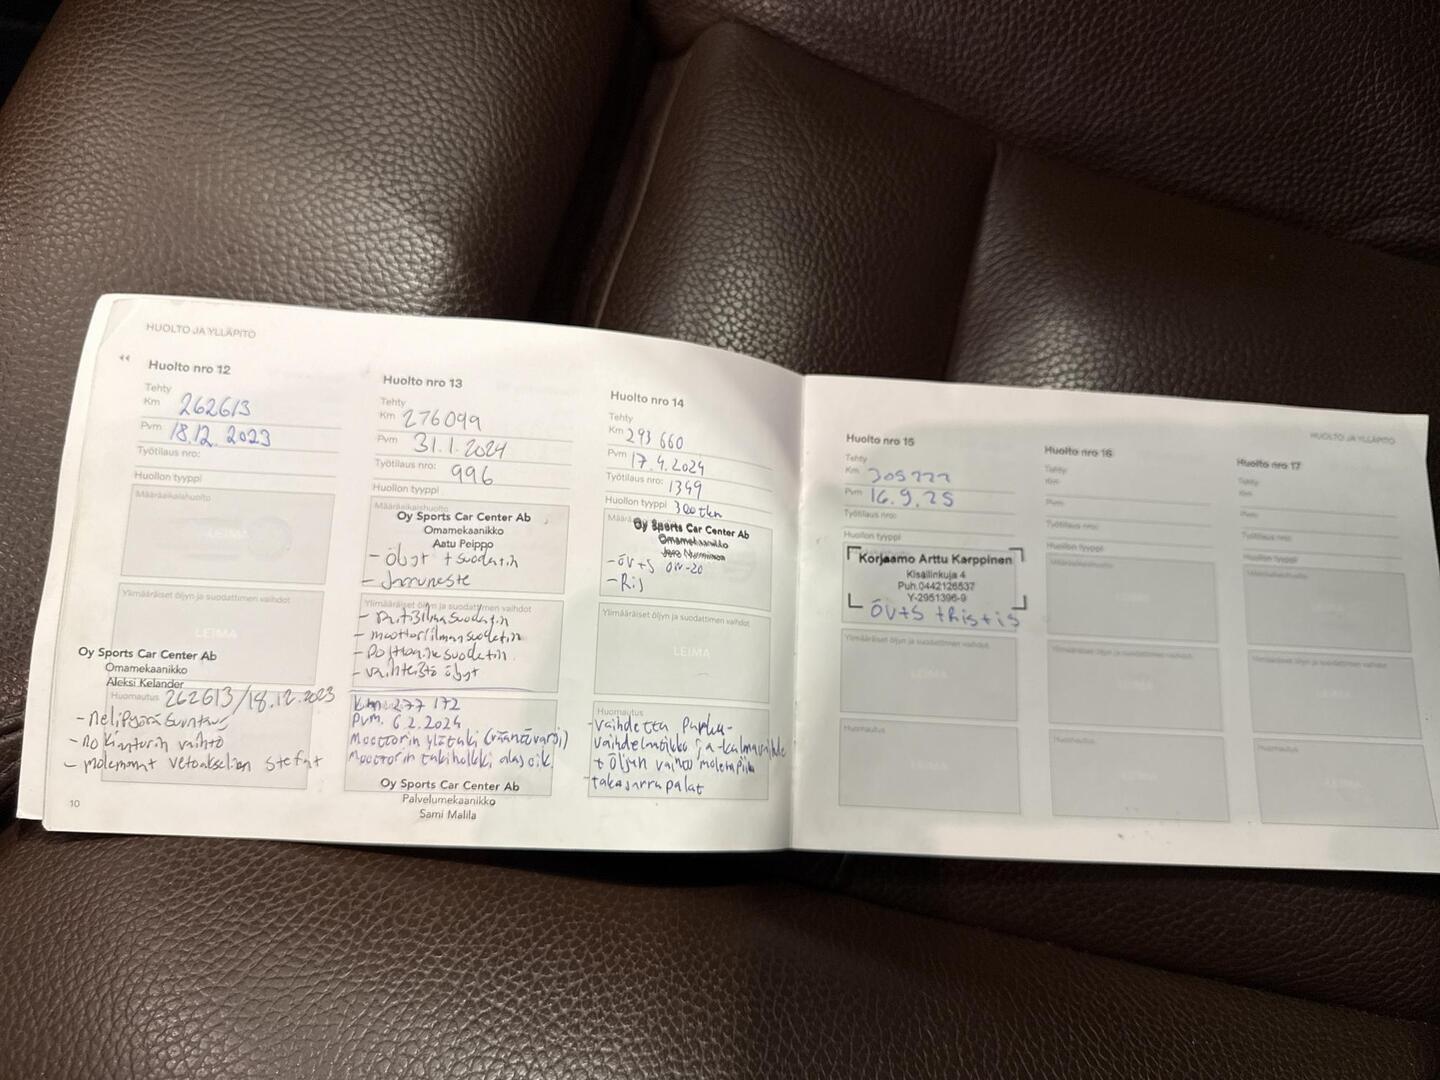 HUOLTO JA YLLÄPITO
Huolto nro 12
Tehty
Km 262613
Pvm 18.12.2023
Työtilaus nro:
Huollon tyyppi
Määräaikaishuolto
LEIMA
Ylimääräiset öljyn ja suodattimen vaihdot
LEIMA
Oy Sports Car Center Ab
Omamekaanikko
Aleksi Kelander
Huomautus 262613/18.12.2023
- nelipyöräsuuntaus
vaihto
- molemmat vetoakselien
10
Huolto nro 13
Tehty
Km 276099
Pvm 31.1.2024
Työtilaus nro: 996
Huollon tyyppi
Määräaikaishuolto
Oy Sports Car Center Ab
Omamekaanikko
Aatu Peippo
- öljyt + suodatin
- Jarruneste
Ylimääräiset öljyn ja suodattimen vaihdot
- raitisilmasuodatin
- moottorilmansuodatin
- polttoainesuodatin
- vaihteisto öljyt
Km 277 172
Pvm. 6.2.2024
Moottorin ylätuki (vääntövarsi)
Moottorin takiholkki alas oik
Oy Sports Car Center Ab
Palvelumekaanikko
Sami Malila
Huolto nro 14
Tehty
Km 293 660
Pvm 17.4.2024
Työtilaus nro: 1349
Huollon tyyppi 300tkm
Oy Sports Car Center Ab
Omamekaanikko
- öv+s 0w-20
- Ris
Ylimääräiset öljyn ja suodattimen vaihdot
LEIMA
Huomautus
- vaihdettu
+ öljyn vaihto
- takajarrupalat
HUOLTO JA YLLÄPITO
Huolto nro 15
Tehty
Km 305222
Pvm 16.9.25
Työtilaus nro:
Huollon tyyppi
Korjaamo Arttu Karppinen
Kisällinkuja 4
Puh.0442126537
Y-2951396-9
ÖV+S +Ris+is
Ylimääräiset öljyn ja suodattimen vaihdot
Huomautus
Huolto nro 16
Tehty
Km
Pvm
Työtilaus nro:
Huollon tyyppi
Määräaikaishuolto
Ylimääräiset öljyn ja suodattimen vaihdot
Huomautus
Huolto nro 17
Tehty
Km
Pvm
Työtilaus nro:
Huollon tyyppi
Määräaikaishuolto
Ylimääräiset öljyn ja suodattimen vaihdot
Huomautus